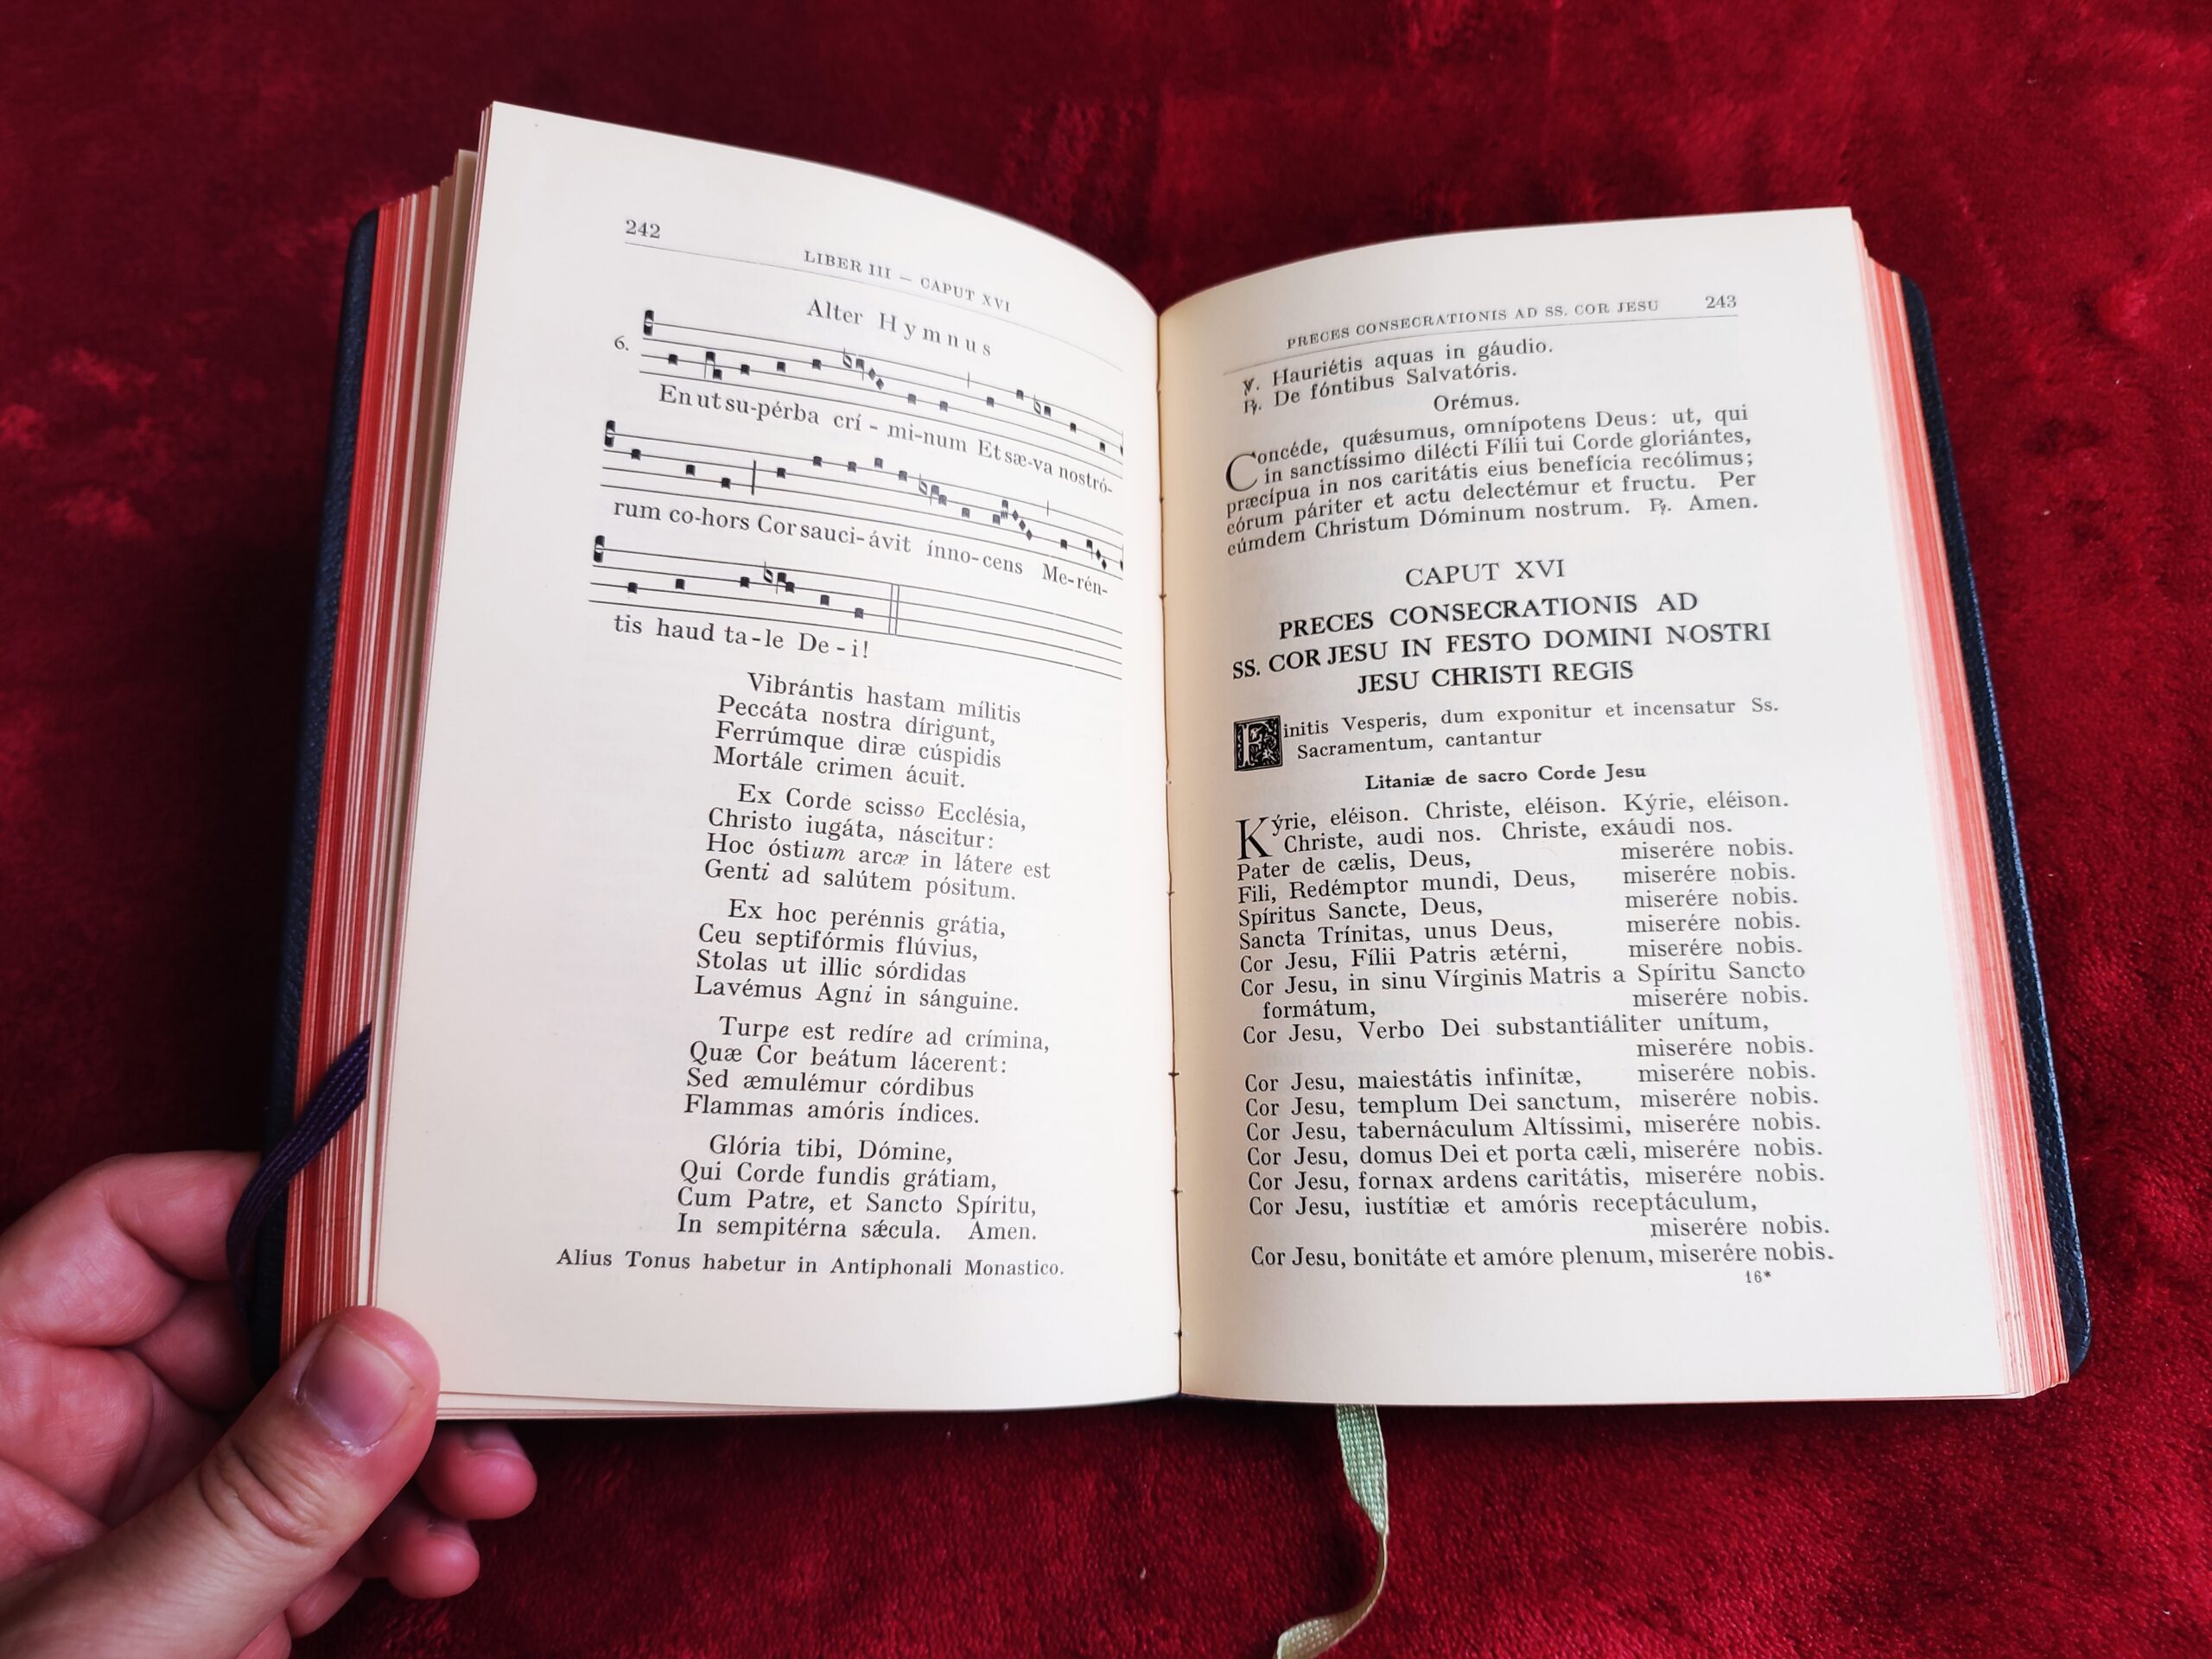 242
LIBER III — CAPUT XVI
Alter Hymnus
6.
En ut su-pérba crí - mi-num Et sæ-va nostró-
rum co-hors Cor sauci-ávit ínno-cens Me-rén-
tis haud ta-le De-i!
Vibrántis hastam mílitis
Peccáta nostra dírigunt,
Ferrúmque diræ cúspidis
Mortále crimen ácuit.
Ex Corde scisso Ecclésia,
Christo iugáta, náscitur:
Hoc óstium arcæ in látere est
Genti ad salútem pósitum.
Ex hoc perénnis grátia,
Ceu septifórmis flúvius,
Stolas ut illic sórdidas
Lavémus Agni in sánguine.
Turpe est redíre ad crímina,
Quæ Cor beátum lácerent:
Sed æmulémur córdibus
Flammas amóris índices.
Glória tibi, Dómine,
Qui Corde fundis grátiam,
Cum Patre, et Sancto Spíritu,
In sempitérna sǽcula. Amen.
Alius Tonus habetur in Antiphonali Monastico.
PRECES CONSECRATIONIS AD SS. COR JESU 243
℣. Hauriétis aquas in gáudio.
℟. De fóntibus Salvatóris.
Orémus.
Concéde, quǽsumus, omnípotens Deus: ut, qui
in sanctíssimo dilécti Fílii tui Corde gloriántes,
præcípua in nos caritátis eius benefícia recólimus;
eórum páriter et actu delectémur et fructu. Per
eúmdem Christum Dóminum nostrum. ℟. Amen.
CAPUT XVI
PRECES CONSECRATIONIS AD
SS. COR JESU IN FESTO DOMINI NOSTRI
JESU CHRISTI REGIS
Finitis Vesperis, dum exponitur et incensatur Ss.
Sacramentum, cantantur
Litaniæ de sacro Corde Jesu
Kýrie, eléison. Christe, eléison. Kýrie, eléison.
Christe, audi nos. Christe, exáudi nos.
Pater de cælis, Deus, miserére nobis.
Fili, Redémptor mundi, Deus, miserére nobis.
Spíritus Sancte, Deus, miserére nobis.
Sancta Trínitas, unus Deus, miserére nobis.
Cor Jesu, Fílii Patris ætérni, miserére nobis.
Cor Jesu, in sinu Vírginis Matris a Spíritu Sancto
formátum, miserére nobis.
Cor Jesu, Verbo Dei substantiáliter unítum,
miserére nobis.
Cor Jesu, maiestátis infinítæ, miserére nobis.
Cor Jesu, templum Dei sanctum, miserére nobis.
Cor Jesu, tabernáculum Altíssimi, miserére nobis.
Cor Jesu, domus Dei et porta cæli, miserére nobis.
Cor Jesu, fornax ardens caritátis, miserére nobis.
Cor Jesu, iustítiæ et amóris receptáculum,
miserére nobis.
Cor Jesu, bonitáte et amóre plenum, miserére nobis.
16*